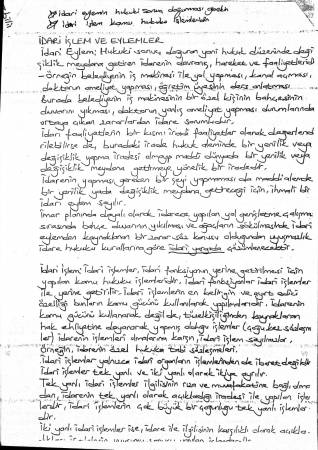 İdari eylemin hukuki sonuç doğurması gerekli
İdari işlem kamu hukuku işlemleridir
İDARİ İŞLEM VE EYLEMLER
İdari Eylem; Hukuki sonuç doğuran yani hukuk düzeninde deği
şiklik meydana getiren idarenin davranış, hareket ve faaliyetleridi
-Örneğin belediyenin iş makinesi ile yol yapması, kanal açması,
doktorun ameliyat yapması, öğretim üyesinin ders anlatması.
Burada belediyenin iş makinesinin bir özel kişinin bahçesinin
duvarını yıkması, doktorun yanlış ameliyat yapması durumlarında
ortaya çıkan zararlardan idare sorumludur.
İdari faaliyetlerin bir kısmı iradi faaliyetler olarak değerlend
rilebilirse de, buradaki irade hukuk aleminde bir yenilik veya
değişiklik yapma iradesi olmayıp maddi dünyada bir yenilik veya
değişiklik meydana getirmeye yönelik bir iradedir.
İdarenin yapması gereken bir şeyi yapmaması da maddi alemde
bir yenilik yada değişiklik meydana getireceği için, ihmali bir
idari eylem sayılır.
İmar planında dayalı olarak idarece yapılan yol genişletme çalışma
sırasında bahçe duvarının yıkılması ve ağaçların sökülmesinde idari
eylemden kaynaklanan bir zarar söz konusu olduğundan uyuşmazlık
idare hukuku kurallarına göre idari yargıda çözümlenecektir.
İdari İşlem; İdari işlemler, idari fonksiyonun yerine getirilmesi için
yapılan kamu hukuku işlemleridir. İdari fonksiyonlar idari işlemler
ile yerine getirilir. İdari işlemlerin en belirgin ve ayırt edici
özelliği bunların kamu gücünü kullanılarak yapılmalarıdır. İdarenin
kamu gücünü kullanarak değil de, tüzelkişiliğinden kaynaklanan
hak ehliyetine dayanarak yapmış olduğu işlemler (çoğu kez sözleşm
ler) idarenin işlemleri olmalarına karşın, idari işlem sayılmazlar,
Örneğin, idarenin özel hukuka tabi sözleşmeleri.
İdari işlemler yalnızca idari organların işlemlerinden de ibaret değildir
İdari işlemler tek yanlı ve iki yanlı olarak ikiye ayrılır.
Tek yanlı idari işlemler ilgilisinin rıza ve muvafakatine bağlı olma
dan, idarenin tek yanlı olarak açıkladığı iradesi ile yapılan işle
lerdir, idari işlemlerin çok büyük bir çoğunluğu tek yanlı işlemler-
dir.
İki yanlı idari işlemler ise, idare ile ilgilinin karşılıklı olarak açıkla-